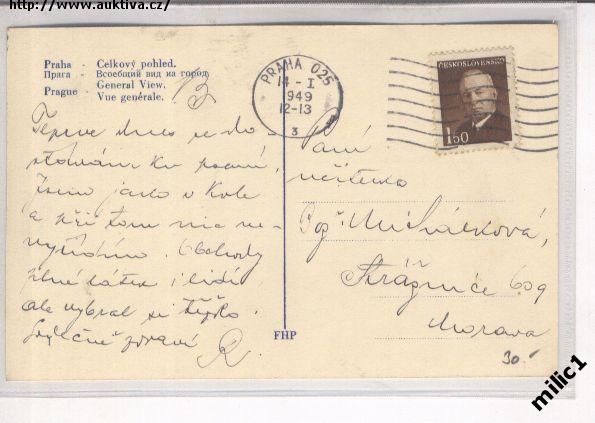 http://www.auktiva.cz/
Praha - Celkový pohled.
Прага - Всоебщий вид на город
Prague - General View.
Vue genérale.
PRAHA 025
14 - I
1949
12-13
3
ČESKOSLOVENSKO
1.50
Teprve dnes se do-
stávám ku psaní.
Jsem jako v kole
a při tom nic ne-
Obchody
plné látek i lidí
ale vybrat si těžko.
Srdečně zdraví R.
Paní
učitelka
Michálková,
Strážnice 609
Morava
FHP
30.-
milic1